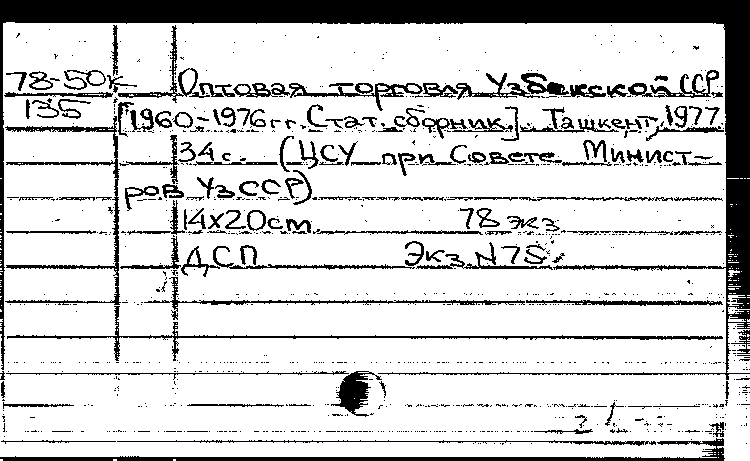 78-50к Оптовая торговля Узбекской ССР
135 [1960-1976гг. Стат. сборник]. Ташкент, 1977
34с. (ЦСУ при Совете Минист-
ров УзССР)
14х20cm. 78 экз
ДСП Экз. N 75